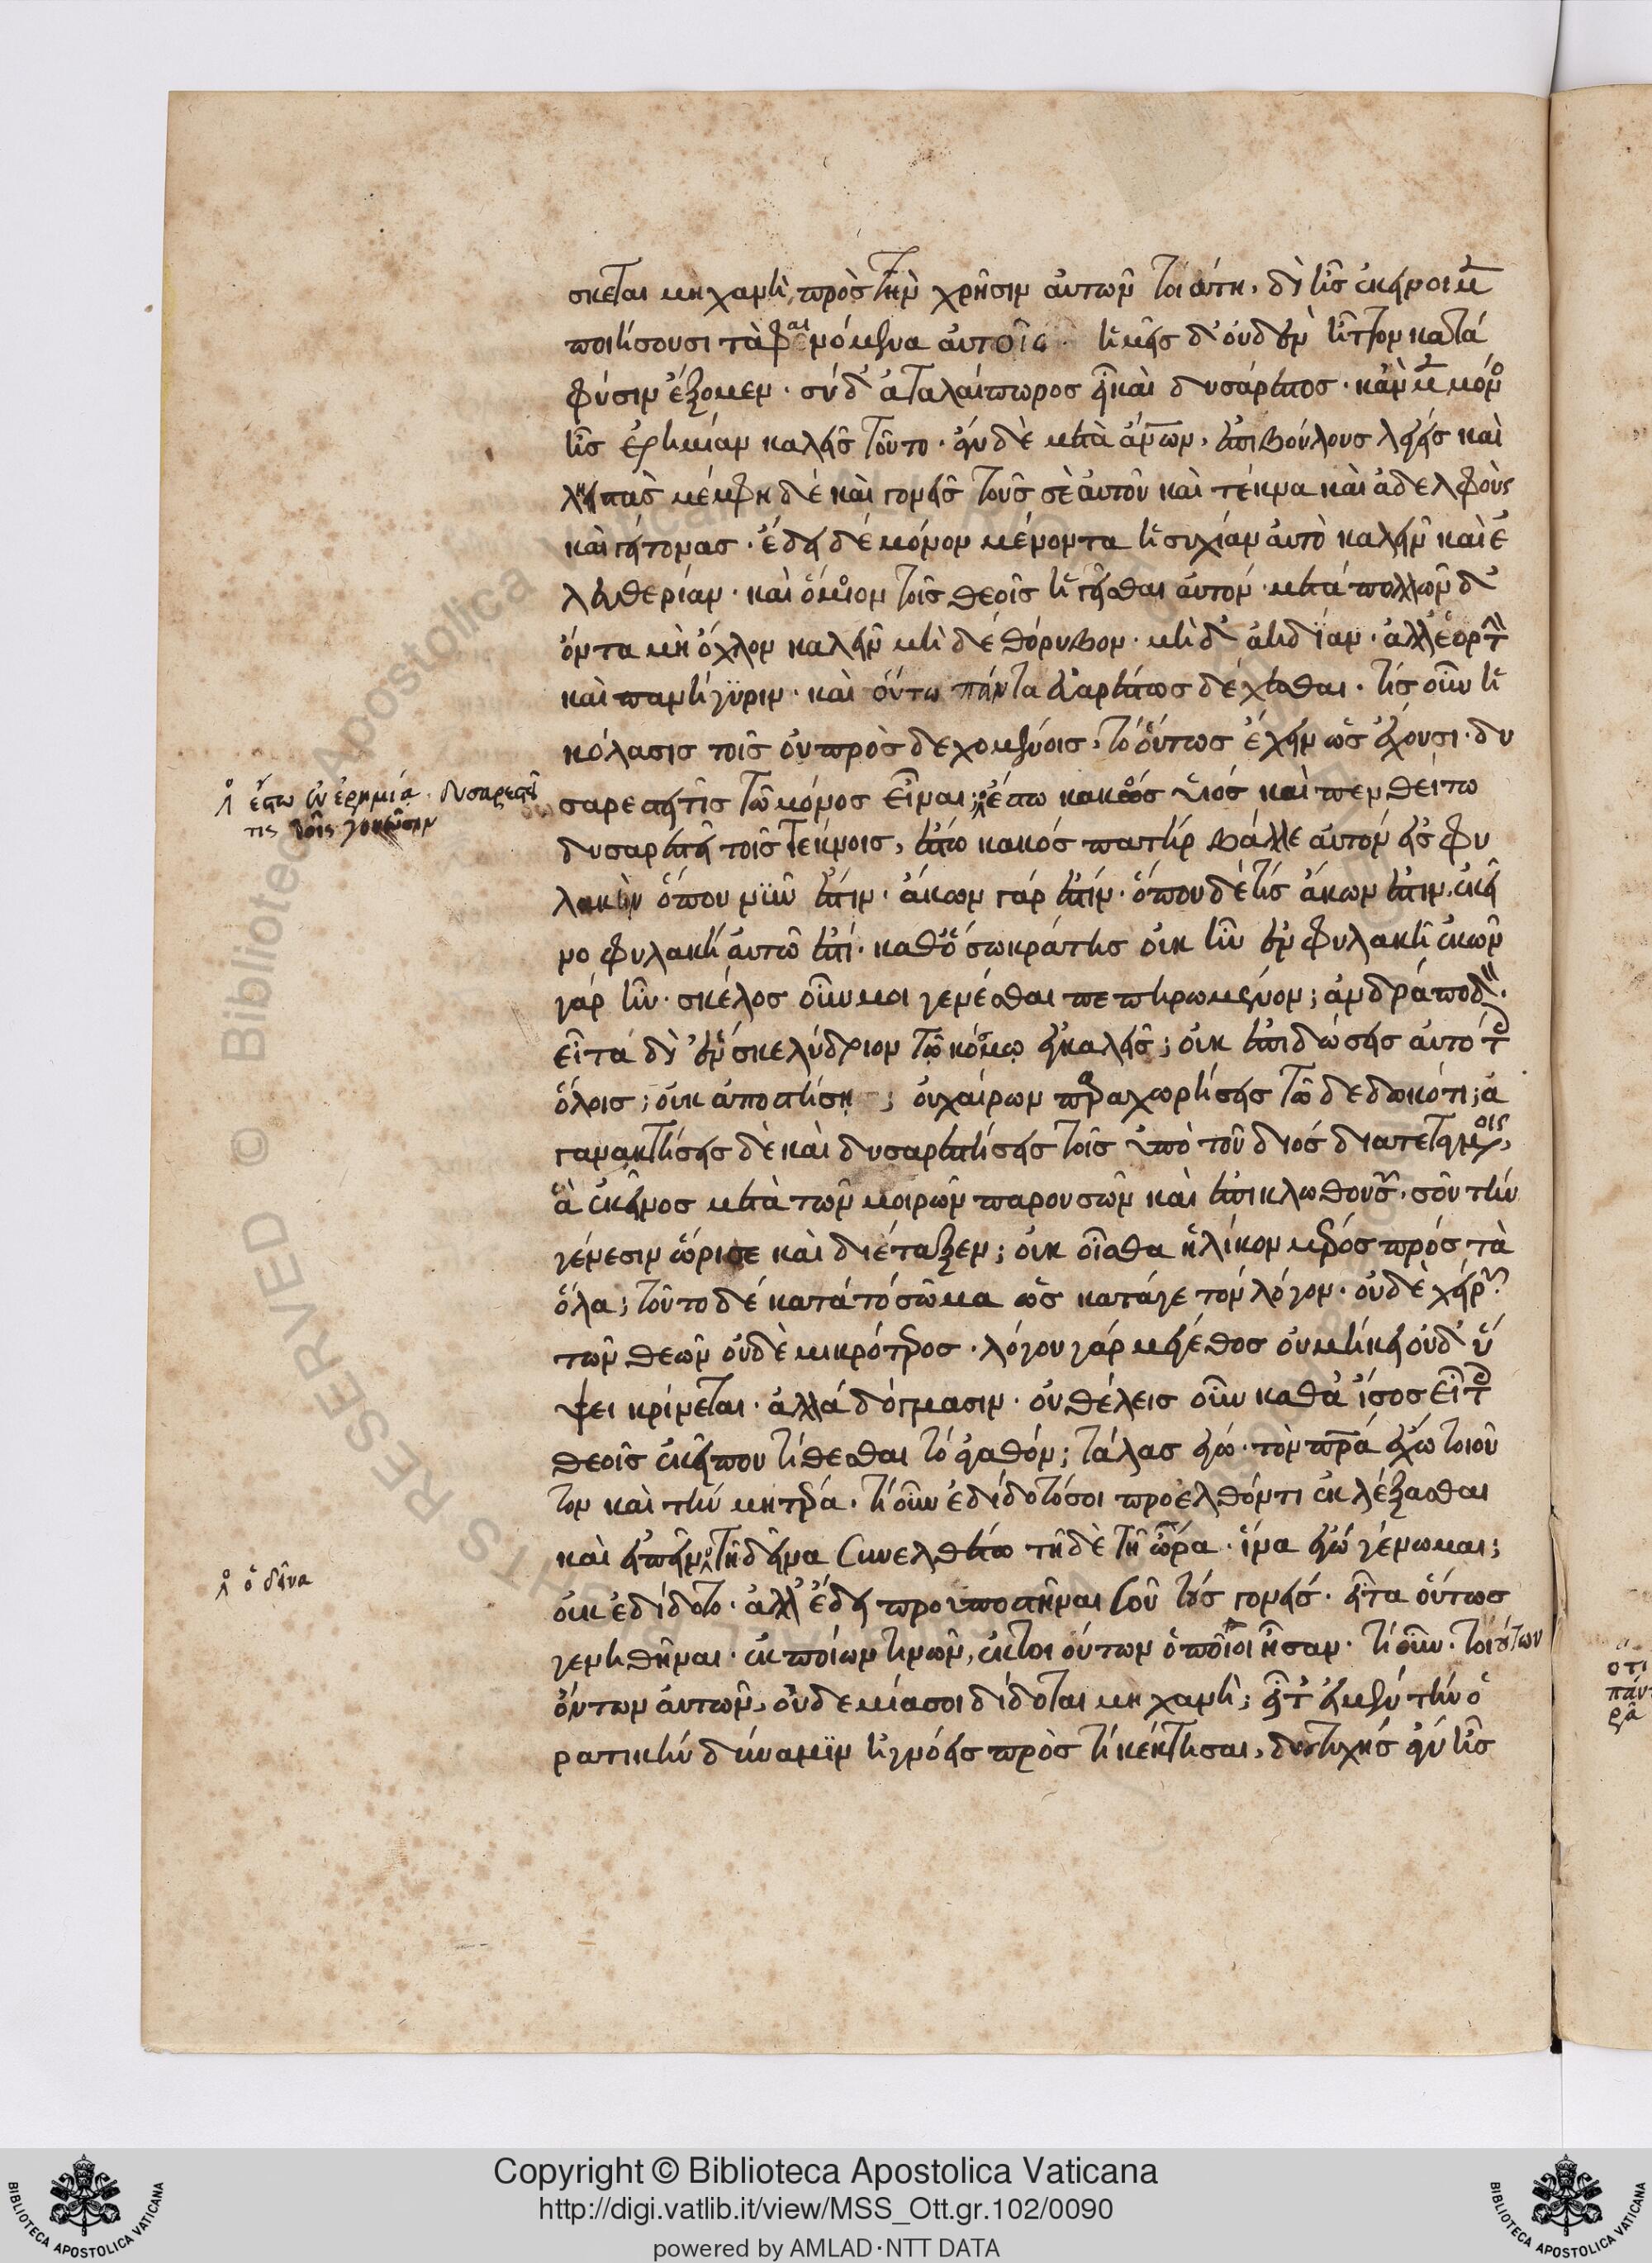 σκεται μηχανὴ πρὸς τὴν χρῆσιν αὐτῶν τοιαύτη, δι' ἧς ἐκεῖνοι μὲν
ποιήσουσι τὰ φαινόμενα αὐτοῖς· ἡμεῖς δ' οὐδὲν ἧττον κατὰ
φύσιν ἕξομεν· σὺ δ' ἀταλαίπωρος εἶ καὶ δυσάρεστος· κἂν μὲν μόνος
ᾖς ἐρημίαν καλεῖς τοῦτο· ἂν δὲ μετὰ ἀνθρώπων, ἐπιβούλους λέγεις καὶ
λῃστάς μέμφῃ δὲ καὶ γονεῖς τοὺς σεαυτοῦ καὶ τέκνα καὶ ἀδελφοὺς
καὶ γείτονας· ἔδει δὲ μόνον μένοντα ἡσυχίαν αὐτὸ καλεῖν καὶ ἐ
λευθερίαν· καὶ ὅμοιον τοῖς θεοῖς ἡγεῖσθαι αὐτόν· μετὰ πολλῶν δ'
ὄντα μὴ ὄχλον καλεῖν μηδὲ θόρυβον· μηδ' ἀηδίαν· ἀλλ' ἑορτὴν
καὶ πανήγυριν· καὶ οὕτω πάντα εὐαρέστως δέχεσθαι· τίς οὖν ἡ
κόλασις τοῖς οὐ προσδεχομένοις, τὸ οὕτως ἔχειν ὡς ἔχουσι· δυ
σαρεστεῖ τις τῷ μόνος εἶναι; ἔστω κακὸς υἱός καὶ πενθείτω
δυσαρεστεῖ τοῖς τέκνοις, ἔστω κακός πατήρ βάλλε αὐτόν εἰς φυ
λακήν ὅπου νῦν ἐστίν· ἄκων γάρ ἐστίν· ὅπου δέ τίς ἄκων ἐστιν, ἐκεῖ
νο φυλακή αὐτῷ ἐστί· καθὸ σωκράτης οὐκ ἦν ἐν φυλακῇ ἑκὼν
γάρ ἦν· σκέλος οὖν μοι γενέσθαι πεπηρωμένον; ἀνδράποδον·
εἶτα δι' ἓν σκελύδριον τῷ κόσμῳ ἐγκαλεῖς; οὐκ ἐπιδώσεις αὐτὸ τοῖς
ὅλοις; οὐκ ἀποστήσῃ; οὐ χαίρων παραχωρήσεις τῷ δεδωκότι; ἀ
γανακτήσεις δὲ καὶ δυσαρεστήσεις τοῖς ὑπὸ τοῦ διός διατεταγμένοις,
ἃ ἐκεῖνος μετὰ τῶν μοιρῶν παρουσῶν καὶ ἐπικλωθουσῶν σου τὴν
γένεσιν ὥρισε καὶ διέταξεν; οὐκ οἶσθα ἡλίκον μέρος πρός τὰ
ὅλα; τοῦτο δέ κατὰ τό σῶμα ὡς κατάγε τόν λόγον· οὐδὲ χείρων
τῶν θεῶν οὐδὲ μικρότερος· λόγου γάρ μέγεθος οὐ μήκει οὐδ' ὕ
ψει κρίνεται· ἀλλά δόγμασιν· οὐ θέλεις οὖν καθ' ἃ ἴσος εἶ τοῖς
θεοῖς ἐκεῖ που τίθεσθαι τὸ ἀγαθόν; τάλας ἐγώ· τὸν πατέρα ἔχω τοιοῦ
τον καὶ τὴν μητέρα· τί οὖν ἐδίδοτό σοι προελθόντι ἐκλέξασθαι
καὶ εἰπεῖν τῇ δεῖνα συνελθέτω τῇδε τῇ ὥρα· ἵνα ἐγώ γένωμαι;
οὐκ ἐδίδοτο· ἀλλ' ἔδει προυποστῆναι σοῦ τοὺς γονεῖς· εἶτα οὕτως
γενηθῆναι· ἐκ ποίων τινῶν, ἐκ τοιούτων ὁποῖοι ἦσαν· τί οὖν· τοιούτων
ὄντων αὐτῶν, οὐδεμία σοι δίδοται μηχανή; εἶτ' εἰ μὲν τὴν ὁ
ρατικήν δύναμιν ἠγνόεις πρὸς τί κέκτησαι, δυστυχής ἂν ἦς
λ̊ ἔστω ἐν ἐρημίᾳ· δυσαρεστεῖ
τις τοῖς γονεῦσιν
λ̊ ὁ δεῖνα
Copyright © Biblioteca Apostolica Vaticana
http://digi.vatlib.it/view/MSS_Ott.gr.102/0090
powered by AMLAD·NTT DATA